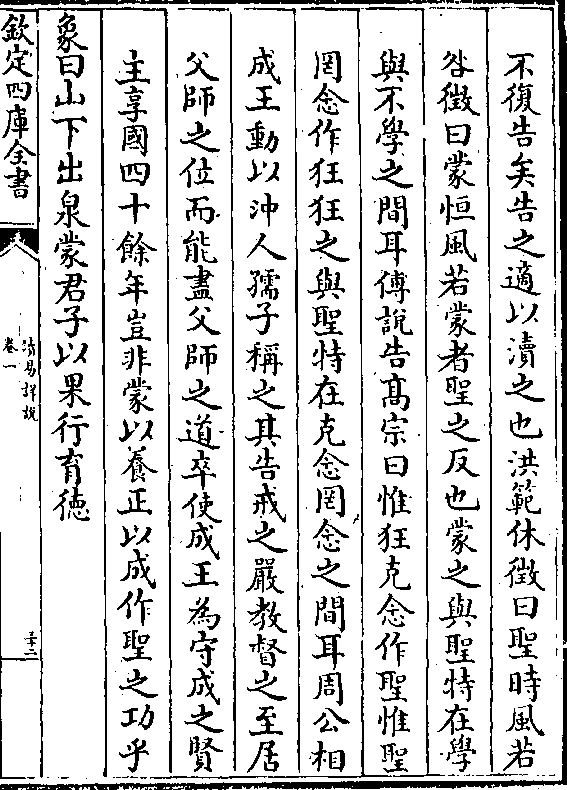 不復告矣告之適以瀆之也洪範休徵曰聖時風若
咎徵曰蒙恒風若蒙者聖之反也蒙之與聖特在學
與不學之間耳傅說告高宗曰惟狂克念作聖惟聖
罔念作狂狂之與聖特在克念罔念之間耳周公相
成王動以沖人孺子稱之其告戒之嚴教督之至居
父師之位而能盡父師之道卒使成王為守成之賢
主享國四十餘年豈非蒙以養正以成作聖之功乎
象曰山下出泉蒙君子以果行育德
欽定四庫全書
讀易詳說
卷一
三十二